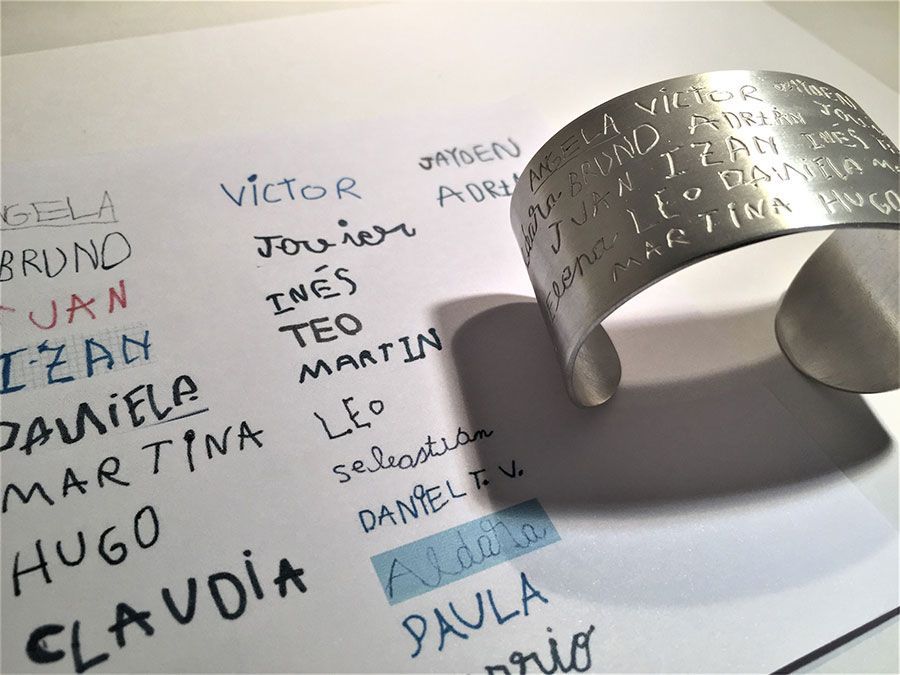 ANGELA
BRUNO
JUAN
IZAN
DANiELA
MARTiNA
HUGO
CLAUDiA
ViCTOR
Javier
INÉS
TEO
MARTIN
LEO
sebastián
DANiEL T. V.
Aldara
PAULA
JAYDEN
ADRI
ANGELA ViCTOR JAYDEN
Aldara BRUNO ADRIÁN
JUAN IZAN INÉS
Elena LEO DANiELA
MARTiNA HUGO